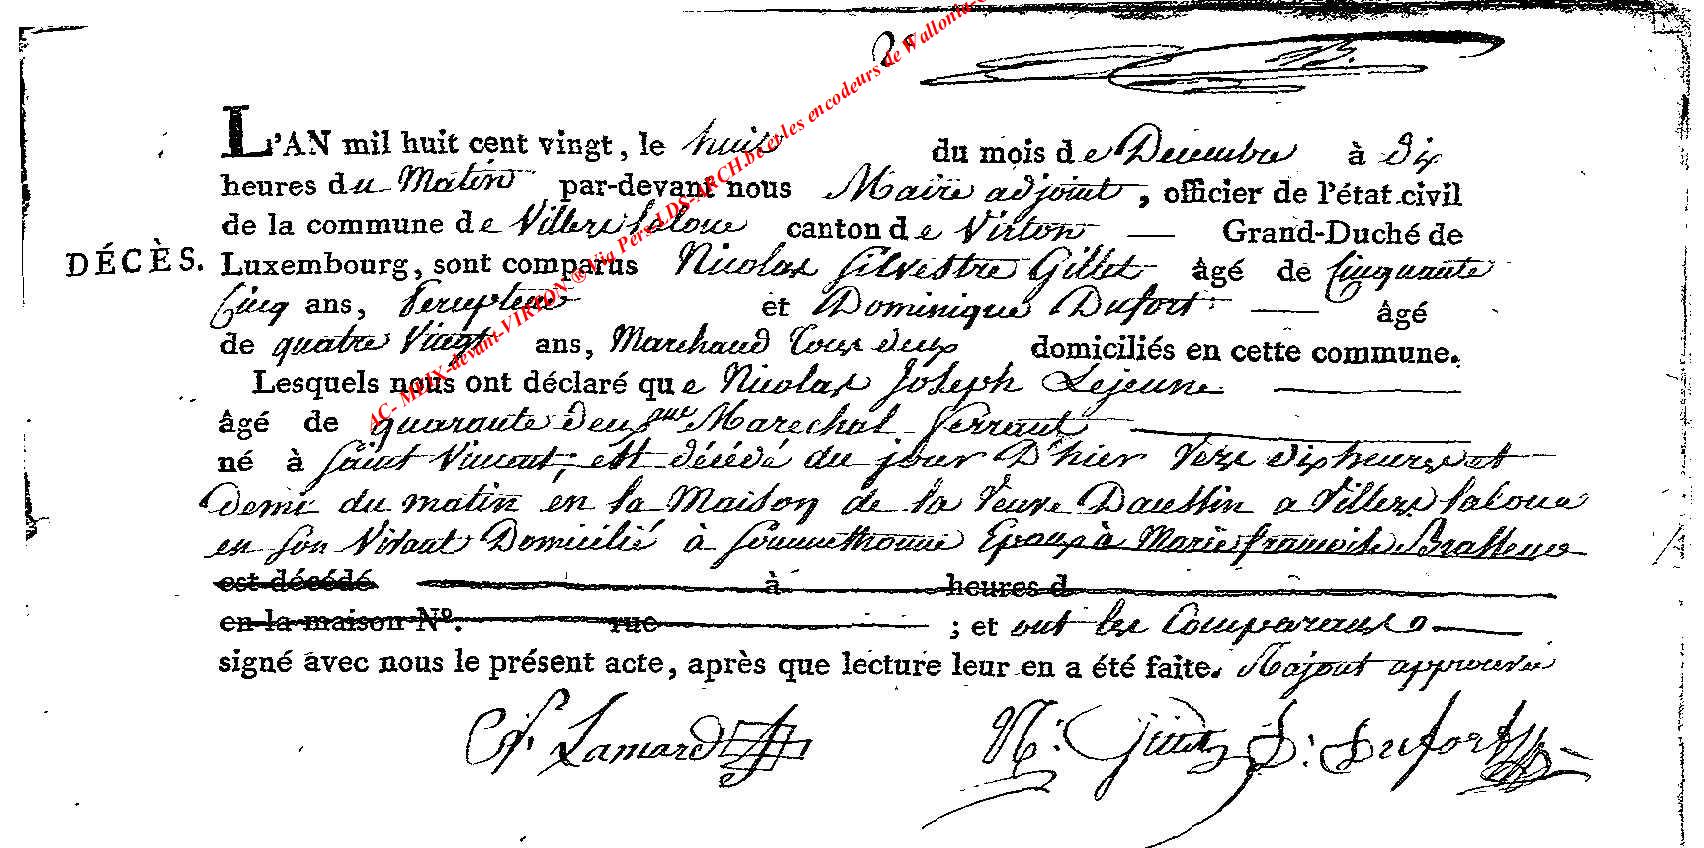 2e B.
L'AN mil huit cent vingt, le huit du mois de Decembre à dix
heures du Matin par-devant nous Maire adjoint, officier de l'état civil
de la commune de Villers laloue canton de Virton — Grand-Duché de
DÉCÈS. Luxembourg, sont comparus Nicolas Silvestre Gillet âgé de Cinquante
Cinq ans, et Dominique Dufort — âgé
de quatre Vingt ans, Marchand Tous deux domiciliés en cette commune.
Lesquels nous ont déclaré que Nicolas Joseph Lejeune
âgé de quarante deux ans Marechal ferrant
né à Saint Vincent, est décédé du jour D'hier vers dix heures et
demi du matin en la Maison de la Veuve Daussin a Villers laloue
en son Vivant Domicilié à Sommethonne Epoux à Marie françoise
est décédé à heures d
en la maison Nº. rue ; et ont les Comparans
signé avec nous le présent acte, après que lecture leur en a été faite. Rajout approuvé
Lamard N: Gillet D: Dufort
AC- MEIX-devant-VIRTON ® Via Pers LDS-ARCH.be et les encodeurs de Wallonia-